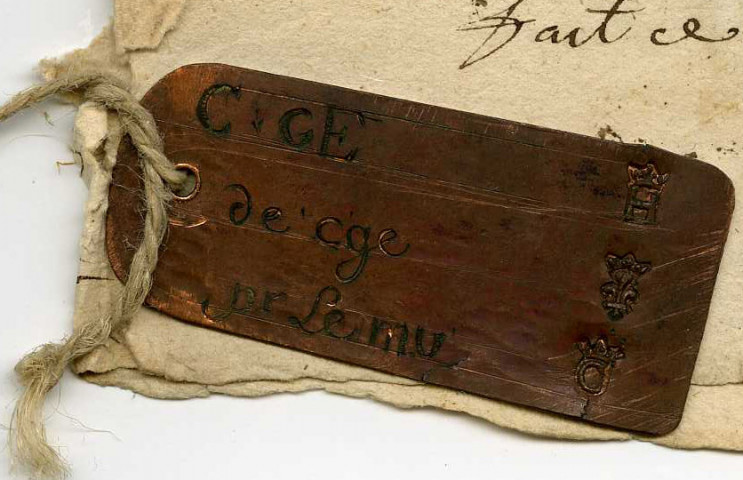 fait ce
C·GE
de cge
pr Le mu
H
C